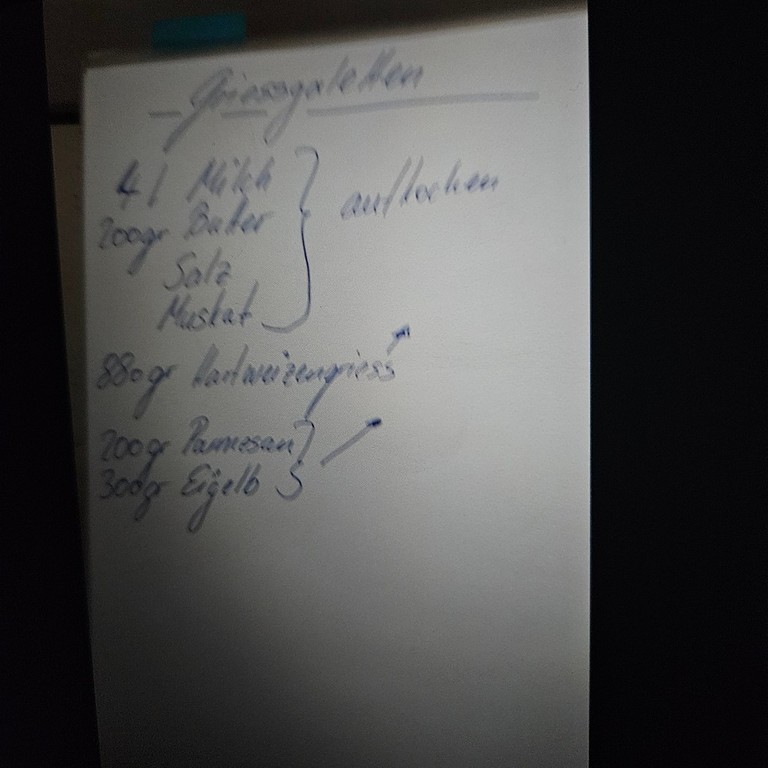 Griessgaletten
4 l Milch
200gr Butter
Salz
Muskat
aufkochen
880gr Hartweizengriess
200gr Parmesan
300gr Eigelb